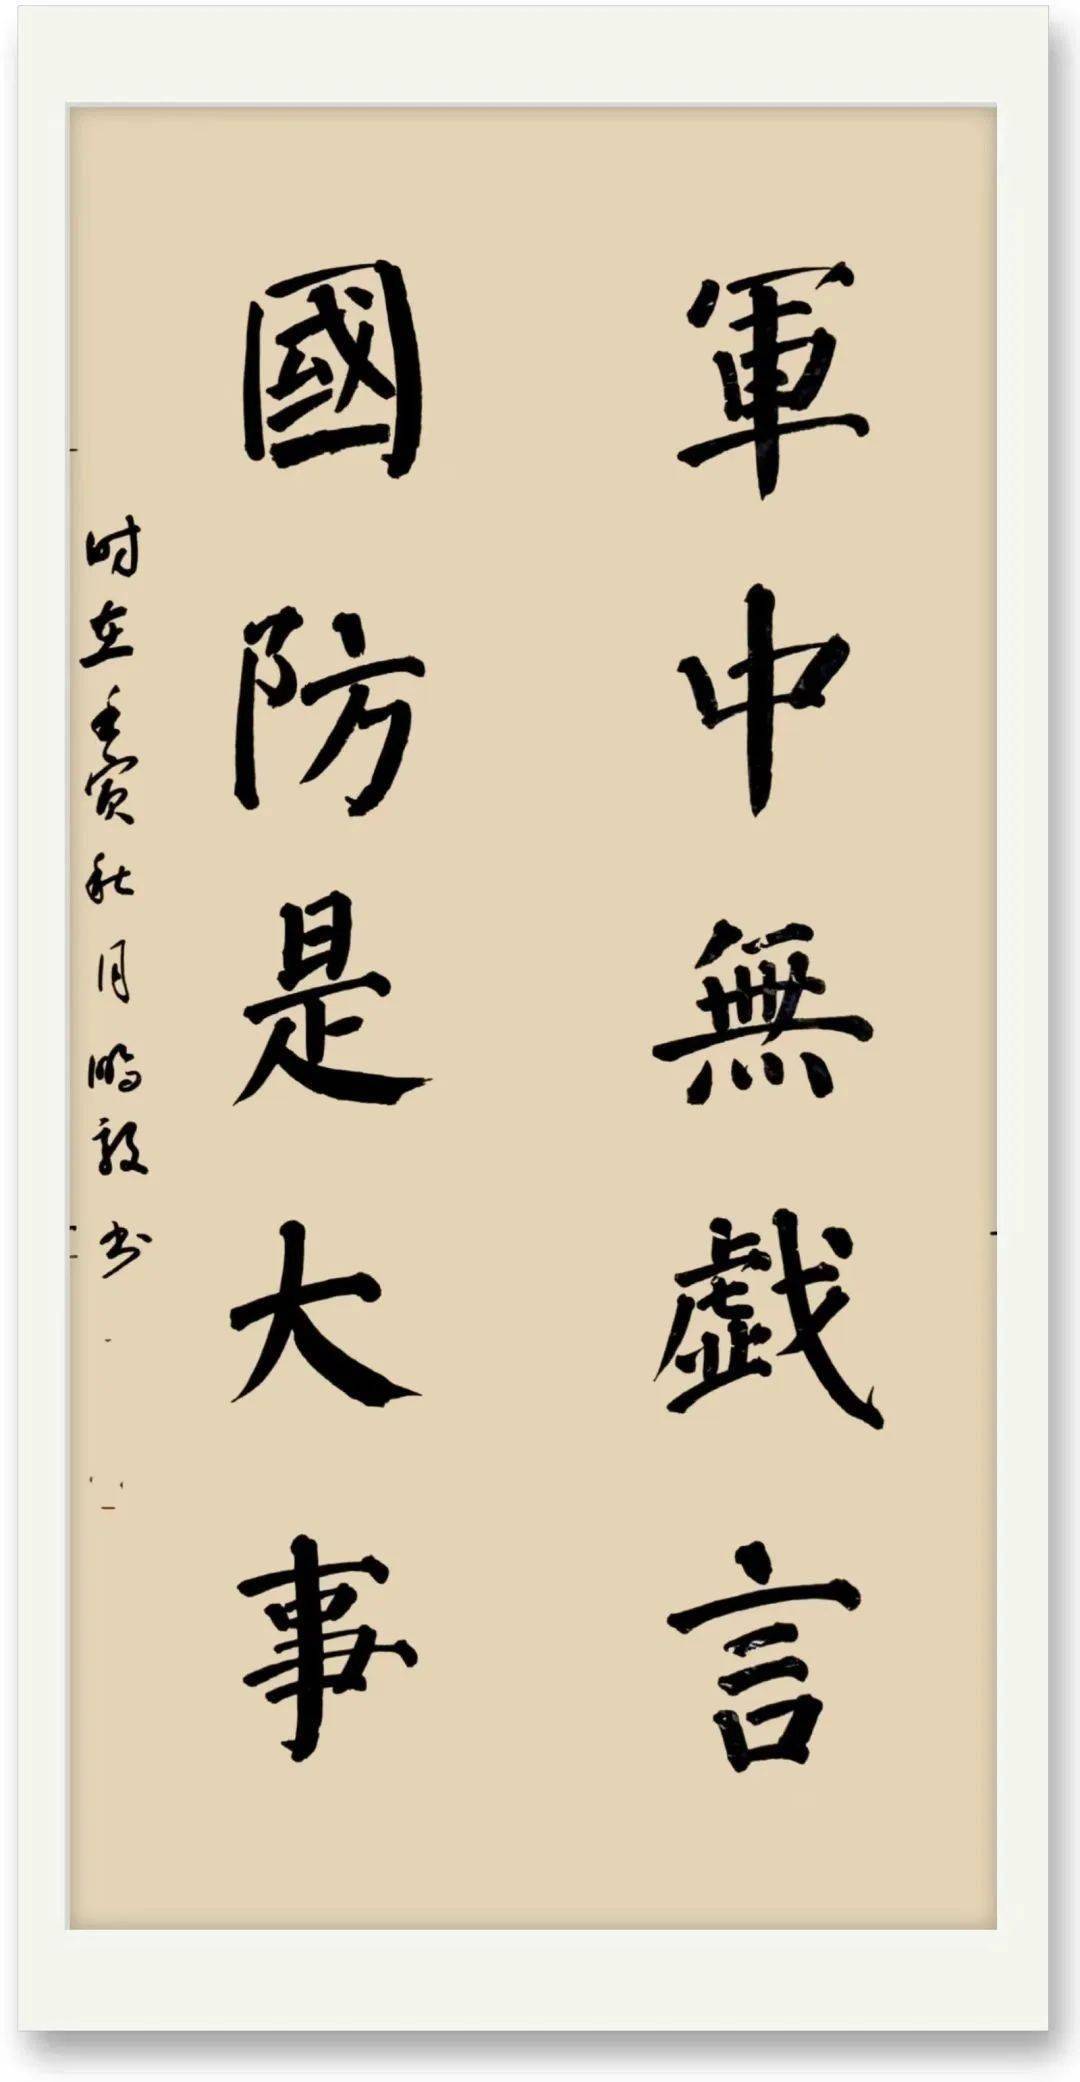 軍中無戲言
國防是大事
时在壬寅秋月鵬毅书